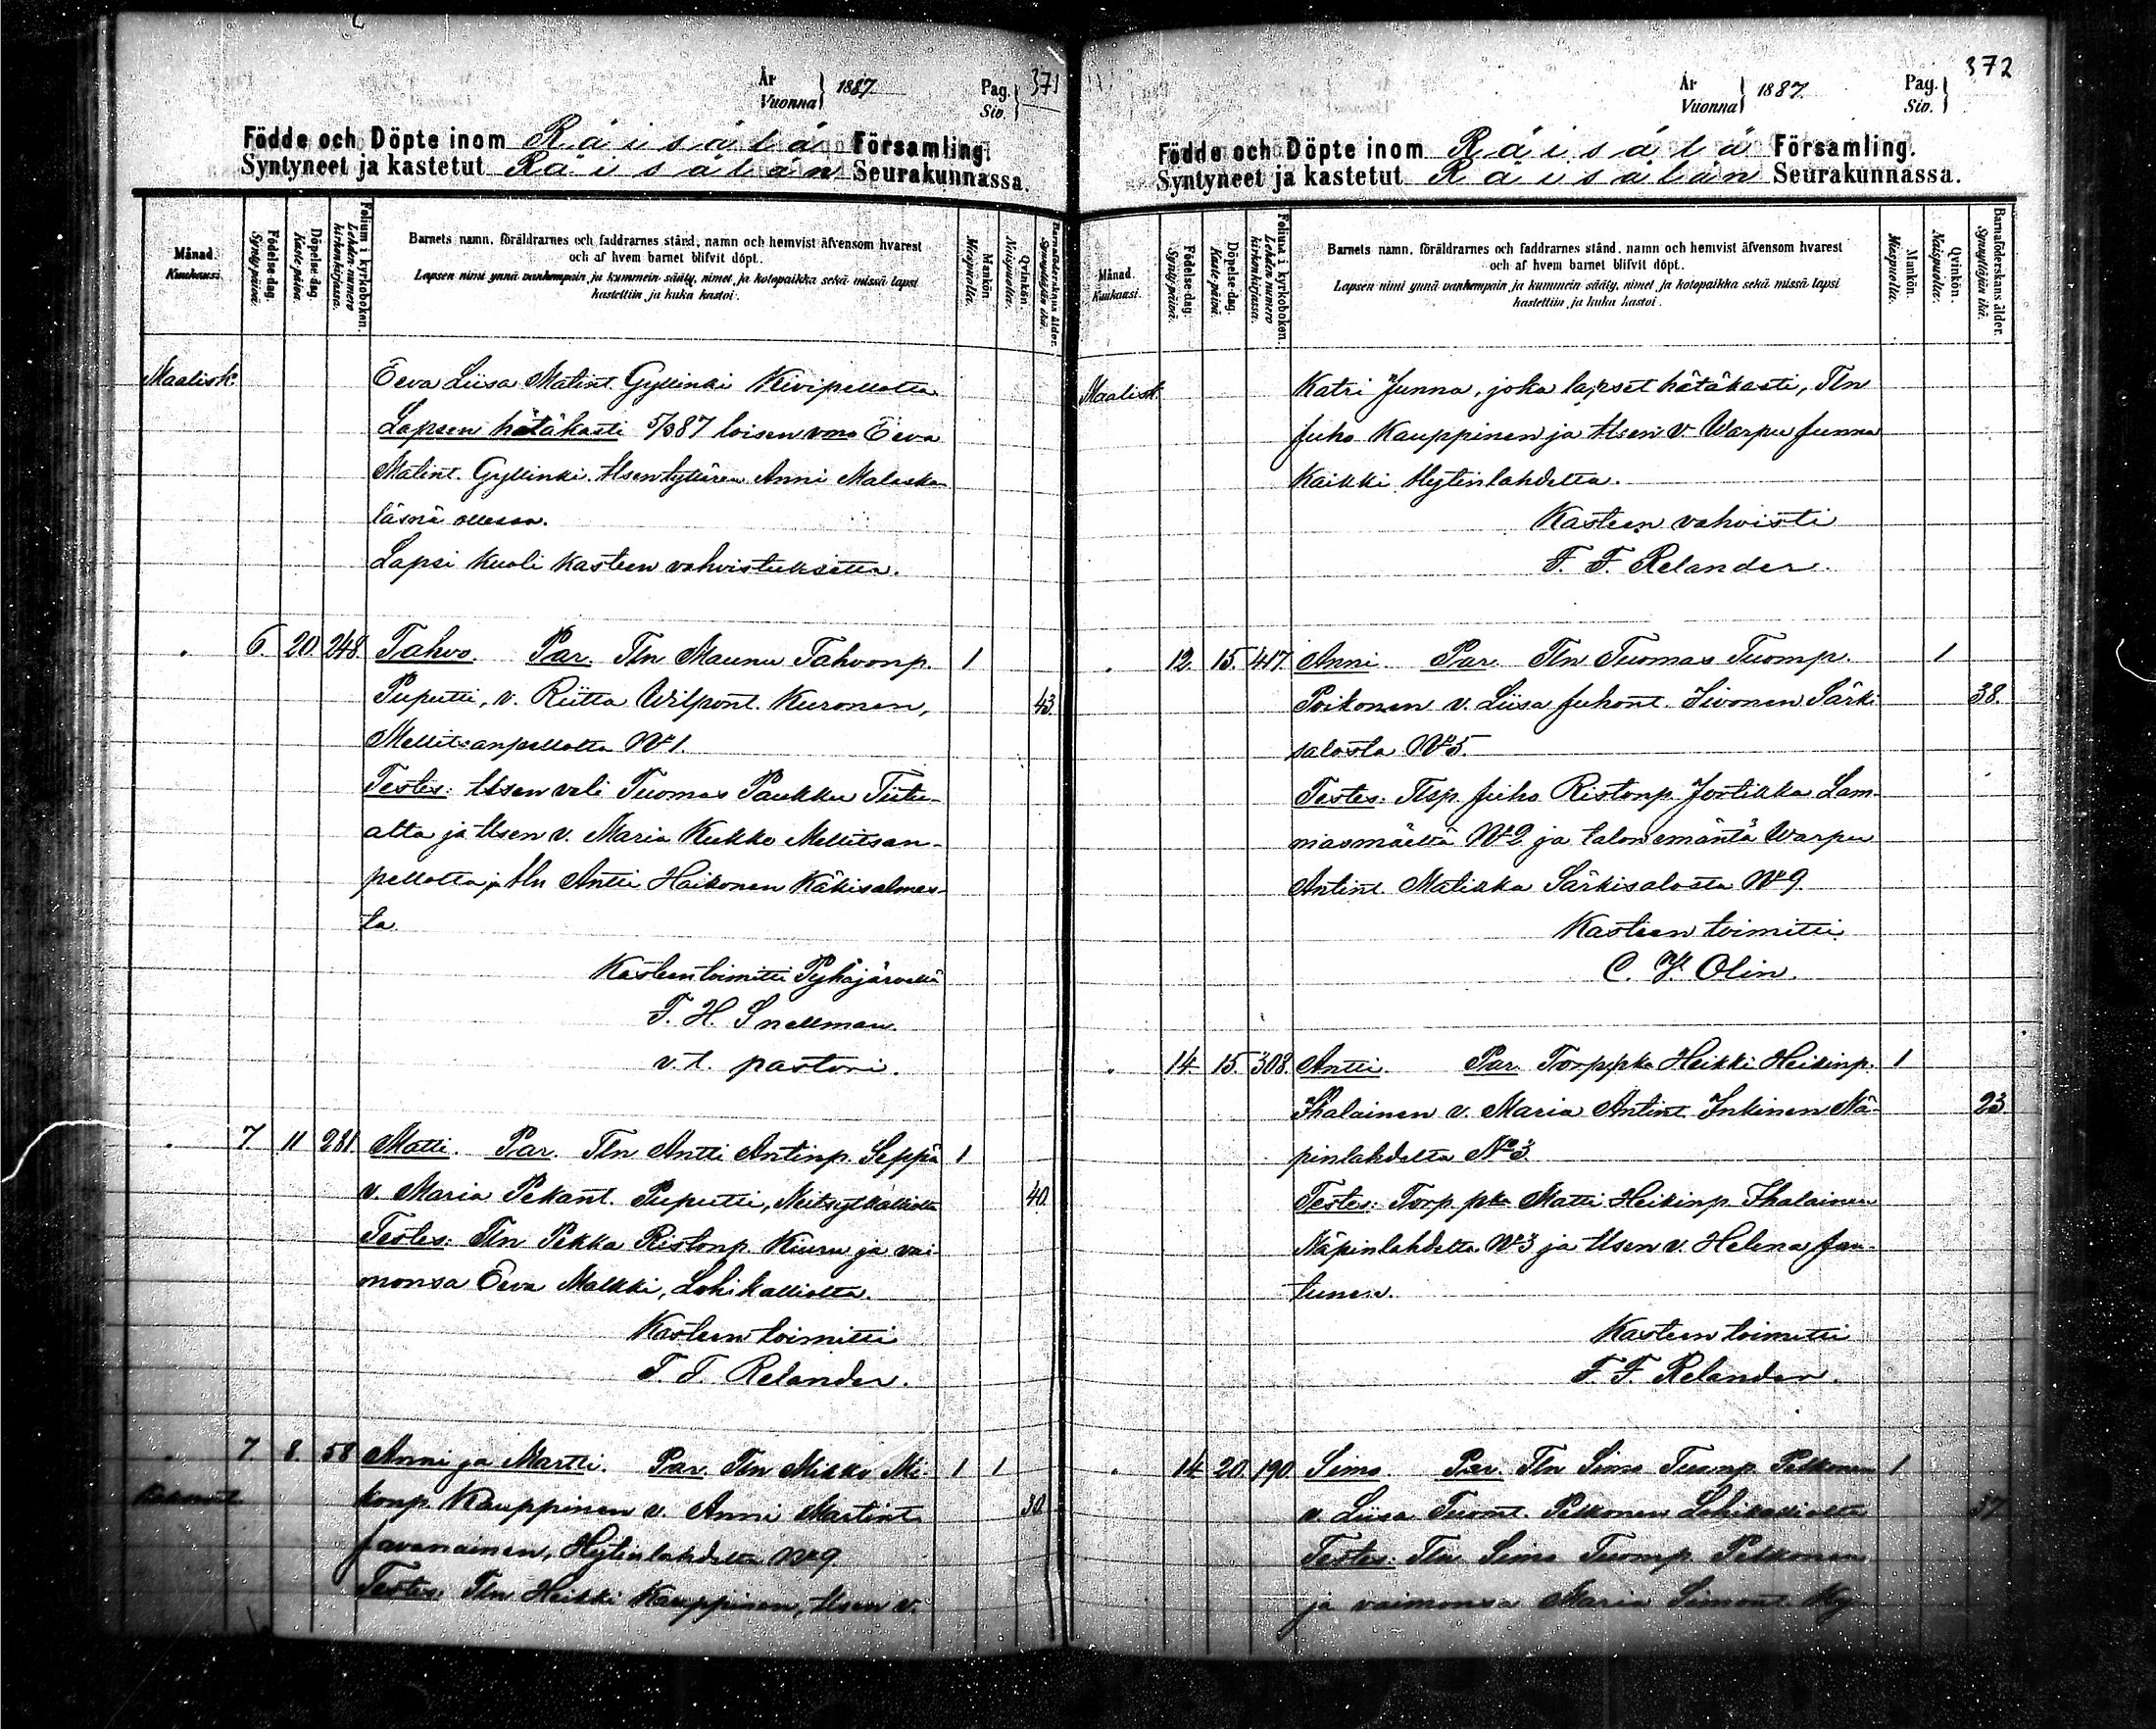 År
Vuonna } 1887.
Pag.
Siv. } 371
Födde och Döpte inom Räisälä Församling.
Syntyneet ja kastetut Räisälän Seurakunnassa.
Månad.
Kuukausi.
Födelse-dag.
Synty-päivä.
Döpelse-dag.
Kaste-päivä.
Folium i kyrkoboken.
Lehden numero kirkonkirjassa.
Barnets namn, föräldrarnes och faddrarnes stånd, namn och hemvist äfvensom hvarest
och af hvem barnet blifvit döpt.
Lapsen nimi ynnä vanhempain ja kummein sääty, nimet ja kotopaikka sekä missä lapsi
kastettiin ja kuka kastoi.
Mankön.
Miespuolia.
Qvinkön.
Naispuolia.
Barnaföderskans ålder.
Synnyttäjän ikä.
Maalisk. Eeva Liisa Matint. Gyllinki Kivipellolta
Lapsen hätäkasti 5/3 87 loisen vmo Eeva
Matint. Gyllinki. Itsen tyttären Anni Malaska
läsnä ollessa.
Lapsi kuoli kasteen vahvistuksetta.
" 6. 20. 248. Tahvo. Par. Tln Maunu Tahvonp. 1
Puputti, v. Riitta Wilpont. Kuronen, 43.
Mellitsanpellolta No 1.
Testes: Itsen veli Tuomas Paukku Tiitu-
alta ja Itsen v. Maria Kukko Mellitsan-
pellolta ja Itln Antti Haikonen Käkisalmes-
ta
Kasteen toimitti Pyhäjärvellä
T. H. Snellman.
v.t. pastori.
" 7. 11 281. Matti. Par. Tln Antti Antinp. Seppä 1
v. Maria Pekant. Puputti, Neitsytkalliolta 40.
Testes: Tln Pekka Ristonp. Kiuru ja vai-
monsa Eeva Malkki, Lohikalliolta.
Kasteen toimitti
F. F. Relander.
" 7. 8. 58 Anni ja Martti. Par. Tln Mikko Mi- 1 1
konp. Kauppinen v. Anni Martint. 30.
Javanainen, Hytinlahdelta No 9
Testes: Tln Heikki Kauppinen, Itsen v.
År
Vuonna } 1887.
Pag.
Siv. } 372
Födde och Döpte inom Räisälä Församling.
Syntyneet ja kastetut Räisälän Seurakunnassa.
Månad.
Kuukausi.
Födelse-dag.
Synty-päivä.
Döpelse-dag.
Kaste-päivä.
Folium i kyrkoboken.
Lehden numero kirkonkirjassa.
Barnets namn, föräldrarnes och faddrarnes stånd, namn och hemvist äfvensom hvarest
och af hvem barnet blifvit döpt.
Lapsen nimi ynnä vanhempain ja kummein sääty, nimet ja kotopaikka sekä missä lapsi
kastettiin ja kuka kastoi.
Mankön.
Miespuolia.
Qvinkön.
Naispuolia.
Barnaföderskans ålder.
Synnyttäjän ikä.
Maalisk. Katri Junna, joka lapset hätäkasti, Tln
Juho Kauppinen ja Itsen v. Warpu Junna
Kaikki Hytinlahdelta.
Kasteen vahvisti
F. F. Relander.
" 12. 15. 417. Anni. Par. Tln Tuomas Tuomp. 1
Poikonen v. Liisa Juhont. Sivonen Särki- 38.
salosta No 5.
Testes: Tlsp. Juho Ristonp. Jortikka Lam-
miasmäeltä No 2 ja talon emäntä Warpu
Antint. Matikka Särkisalosta No 9.
Kasteen toimitti
C. F. Olin.
" 14 15. 308. Antti. Par. Torppka Heikki Heikinp. 1
Ihalainen v. Maria Antint. Inkinen Nä- 23
pinlahdelta No 3.
Testes: Torp. pka Matti Heikinp. Ihalainen
Näpinlahdelta No 3 ja Itsen v. Helena Jan-
tunen.
Kasteen toimitti
F. F. Relander.
" 14 20. 190. Simo. Par. Tln Simo Tuomp. Pelkonen 1
v. Liisa Tuomt. Pelkonen Lohikalliolta 37
Testes: Tln Simo Tuomp. Pelkonen
ja vaimonsa Maria Simont. Ky-